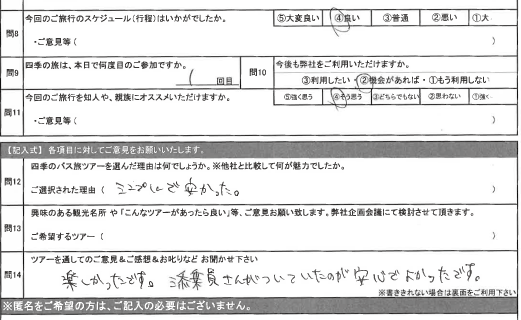 問8 今回のご旅行のスケジュール(行程)はいかがでしたか。 ⑤大変良い ④良い ③普通 ②悪い ①大
・ご意見等( )
問9 四季の旅は、本日で何度目のご参加ですか。 1 回目
問10 今後も弊社をご利用いただけますか。
③利用したい・②機会があれば・①もう利用しない
問11 今回のご旅行を知人や、親族にオススメいただけますか。 ⑤強く思う ④そう思う ③どちらでもない ②思わない ①強く
・ご意見等( )
【記入式】各項目に対してご意見をお願いいたします。
問12 四季のバス旅ツアーを選んだ理由は何でしょうか。※他社と比較して何が魅力でしたか。
ご選択された理由( シンプルで安かった。
問13 興味のある観光名所 や「こんなツアーがあったら良い」等、ご意見お願い致します。弊社企画会議にて検討させて頂きます。
ご希望するツアー( )
問14 ツアーを通してのご意見&ご感想&お叱りなど お聞かせ下さい
楽しかったです。添乗員さんがついていたのが安心でよかったです。
※書ききれない場合は裏面をご利用下さい
※匿名をご希望の方は、ご記入の必要はございません。